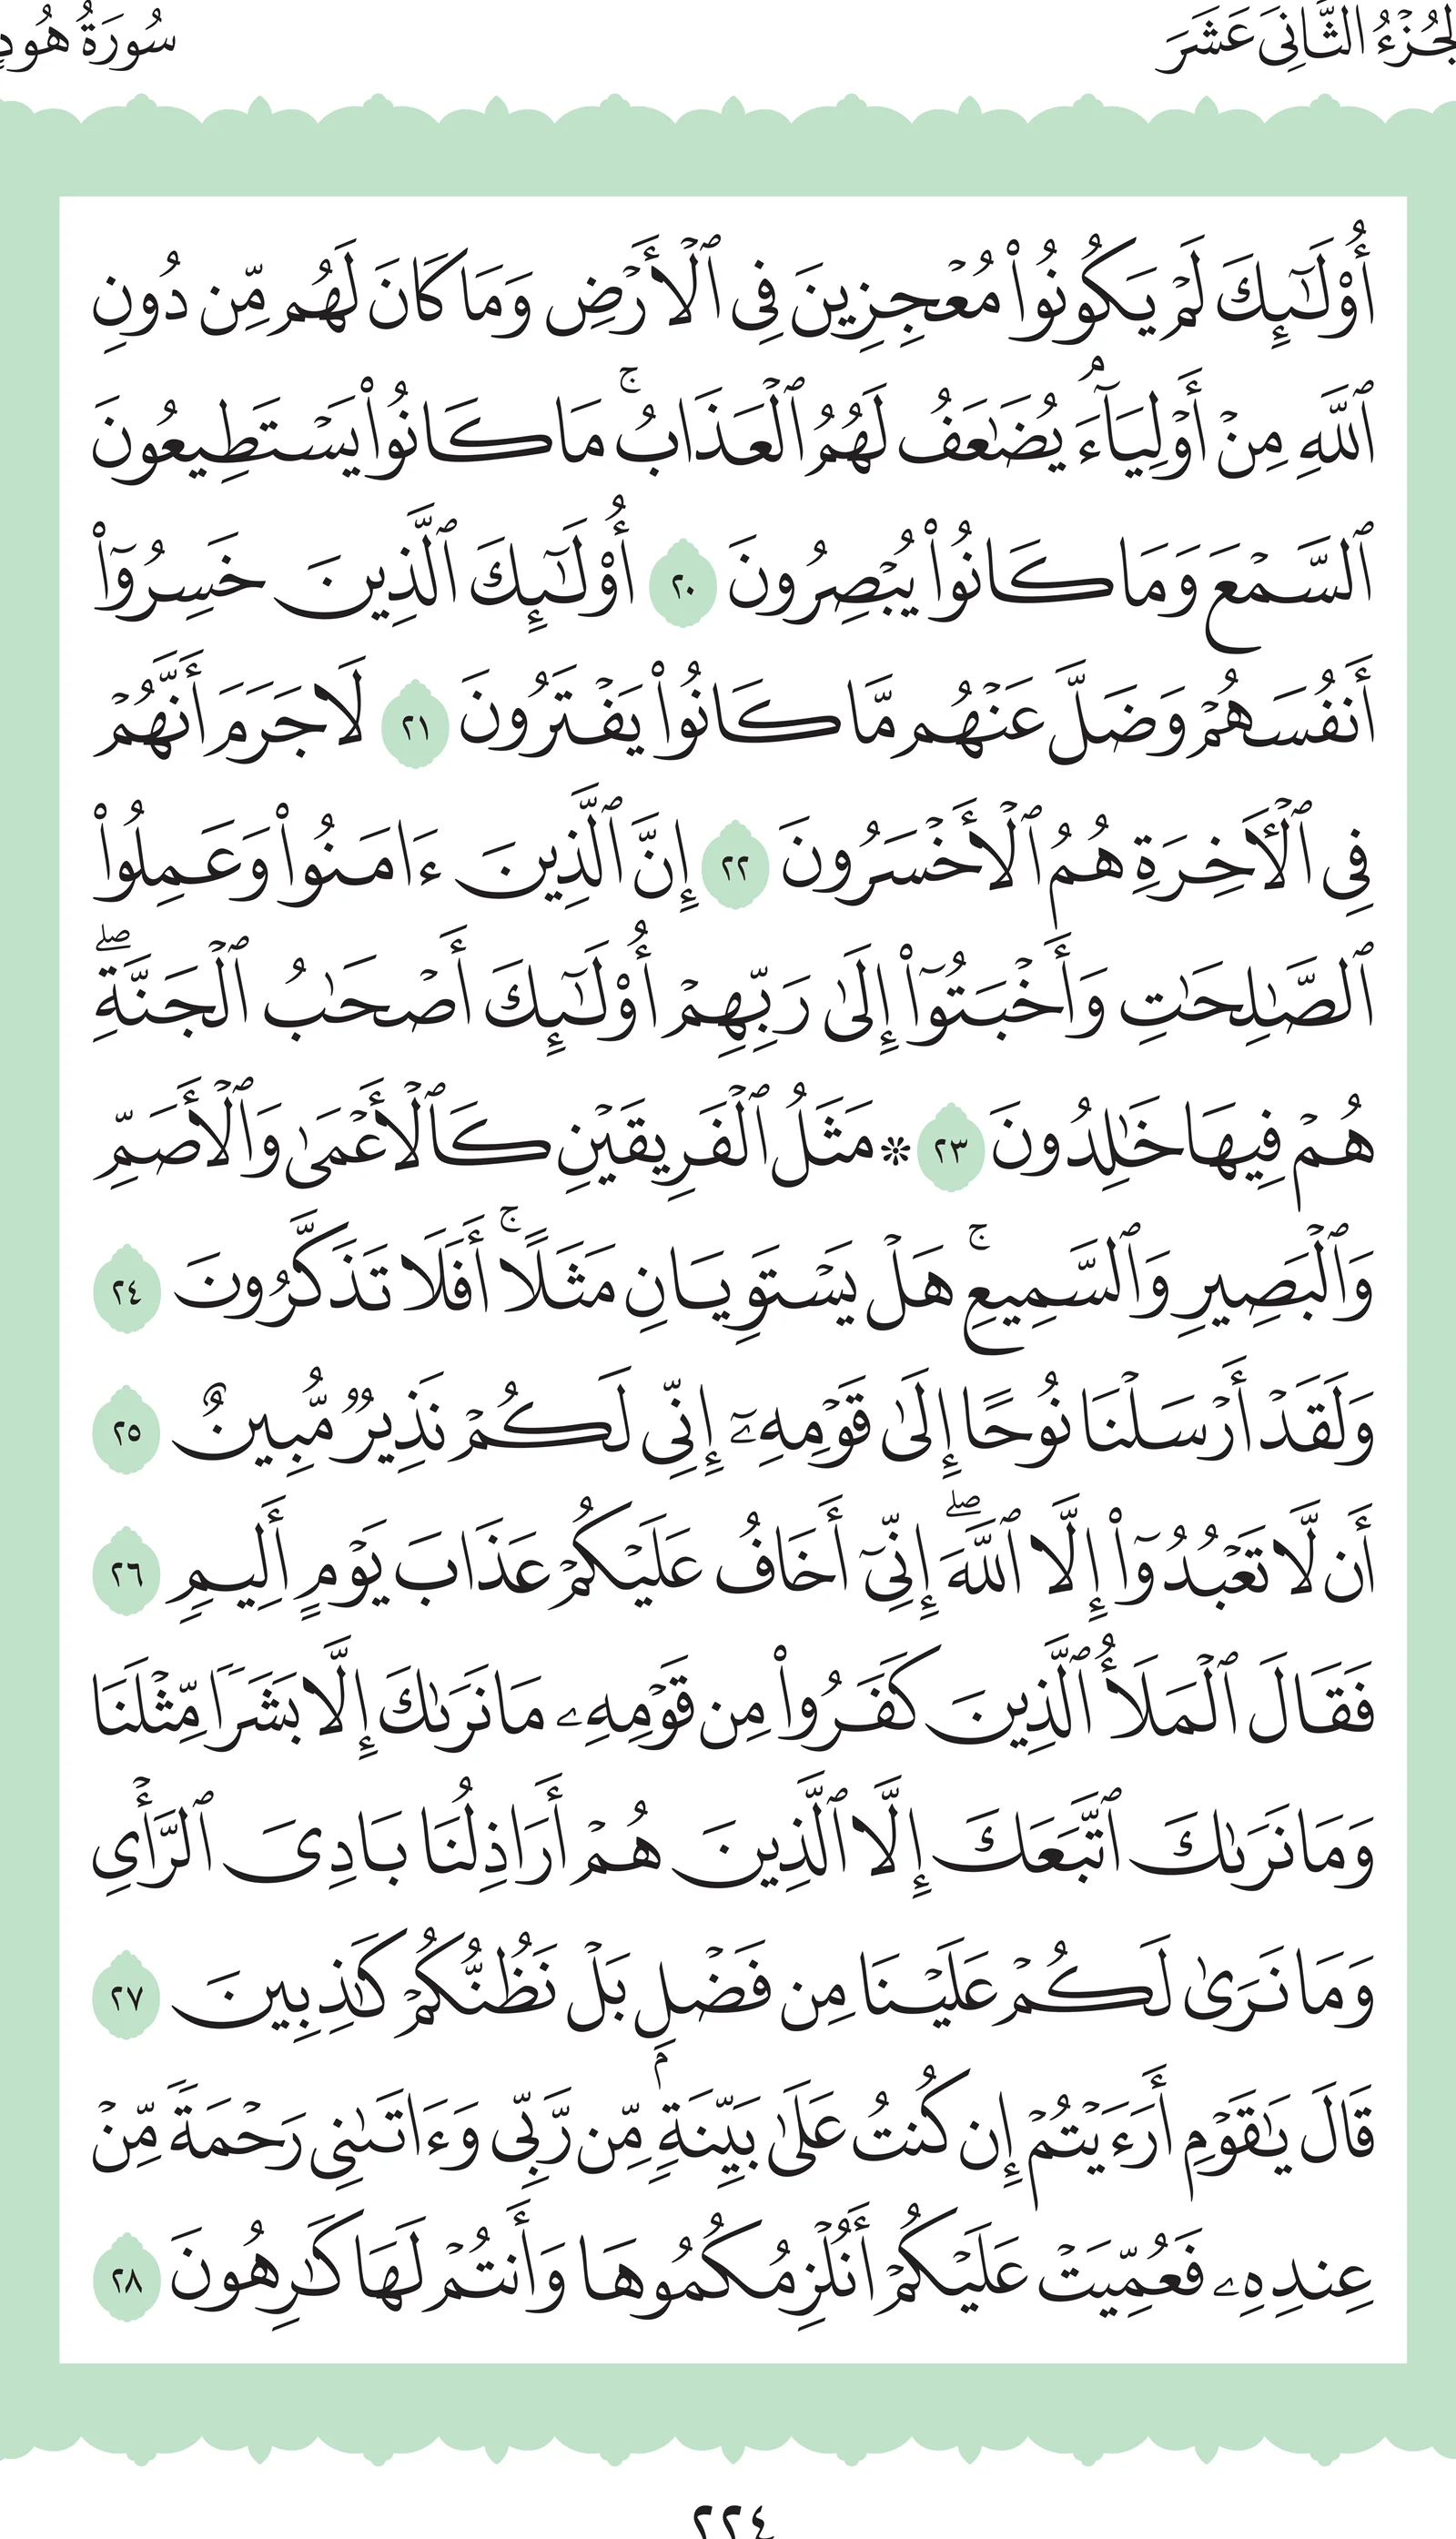 الجُزْءُ الثَّانِيَ عَشَرَ
سُورَةُ هُودٍ
أُوْلَٰٓئِكَ لَمْ يَكُونُواْ مُعْجِزِينَ فِى ٱلْأَرْضِ وَمَا كَانَ لَهُم مِّن دُونِ
ٱللَّهِ مِنْ أَوْلِيَآءَۘ يُضَٰعَفُ لَهُمُ ٱلْعَذَابُۚ مَا كَانُواْ يَسْتَطِيعُونَ
ٱلسَّمْعَ وَمَا كَانُواْ يُبْصِرُونَ ٢٠ أُوْلَٰٓئِكَ ٱلَّذِينَ خَسِرُوٓاْ
أَنفُسَهُمْ وَضَلَّ عَنْهُم مَّا كَانُواْ يَفْتَرُونَ ٢١ لَا جَرَمَ أَنَّهُمْ
فِى ٱلْأَخِرَةِ هُمُ ٱلْأَخْسَرُونَ ٢٢ إِنَّ ٱلَّذِينَ ءَامَنُواْ وَعَمِلُواْ
ٱلصَّٰلِحَٰتِ وَأَخْبَتُوٓاْ إِلَىٰ رَبِّهِمْ أُوْلَٰٓئِكَ أَصْحَٰبُ ٱلْجَنَّةِۖ
هُمْ فِيهَا خَٰلِدُونَ ٢٣ ❊ مَثَلُ ٱلْفَرِيقَيْنِ كَٱلْأَعْمَىٰ وَٱلْأَصَمِّ
وَٱلْبَصِيرِ وَٱلسَّمِيعِۚ هَلْ يَسْتَوِيَانِ مَثَلًاۚ أَفَلَا تَذَكَّرُونَ ٢٤
وَلَقَدْ أَرْسَلْنَا نُوحًا إِلَىٰ قَوْمِهِۦٓ إِنِّى لَكُمْ نَذِيرٌ مُّبِينٌ ٢٥
أَن لَّا تَعْبُدُوٓاْ إِلَّا ٱللَّهَۖ إِنِّىٓ أَخَافُ عَلَيْكُمْ عَذَابَ يَوْمٍ أَلِيمٍ ٢٦
فَقَالَ ٱلْمَلَأُ ٱلَّذِينَ كَفَرُواْ مِن قَوْمِهِۦ مَا نَرَىٰكَ إِلَّا بَشَرًا مِّثْلَنَا
وَمَا نَرَىٰكَ ٱتَّبَعَكَ إِلَّا ٱلَّذِينَ هُمْ أَرَاذِلُنَا بَادِىَ ٱلرَّأْىِ
وَمَا نَرَىٰ لَكُمْ عَلَيْنَا مِن فَضْلٍۭ بَلْ نَظُنُّكُمْ كَٰذِبِينَ ٢٧
قَالَ يَٰقَوْمِ أَرَءَيْتُمْ إِن كُنتُ عَلَىٰ بَيِّنَةٍ مِّن رَّبِّى وَءَاتَىٰنِى رَحْمَةً مِّنْ
عِندِهِۦ فَعُمِّيَتْ عَلَيْكُمْ أَنُلْزِمُكُمُوهَا وَأَنتُمْ لَهَا كَٰرِهُونَ ٢٨
٢٢٤